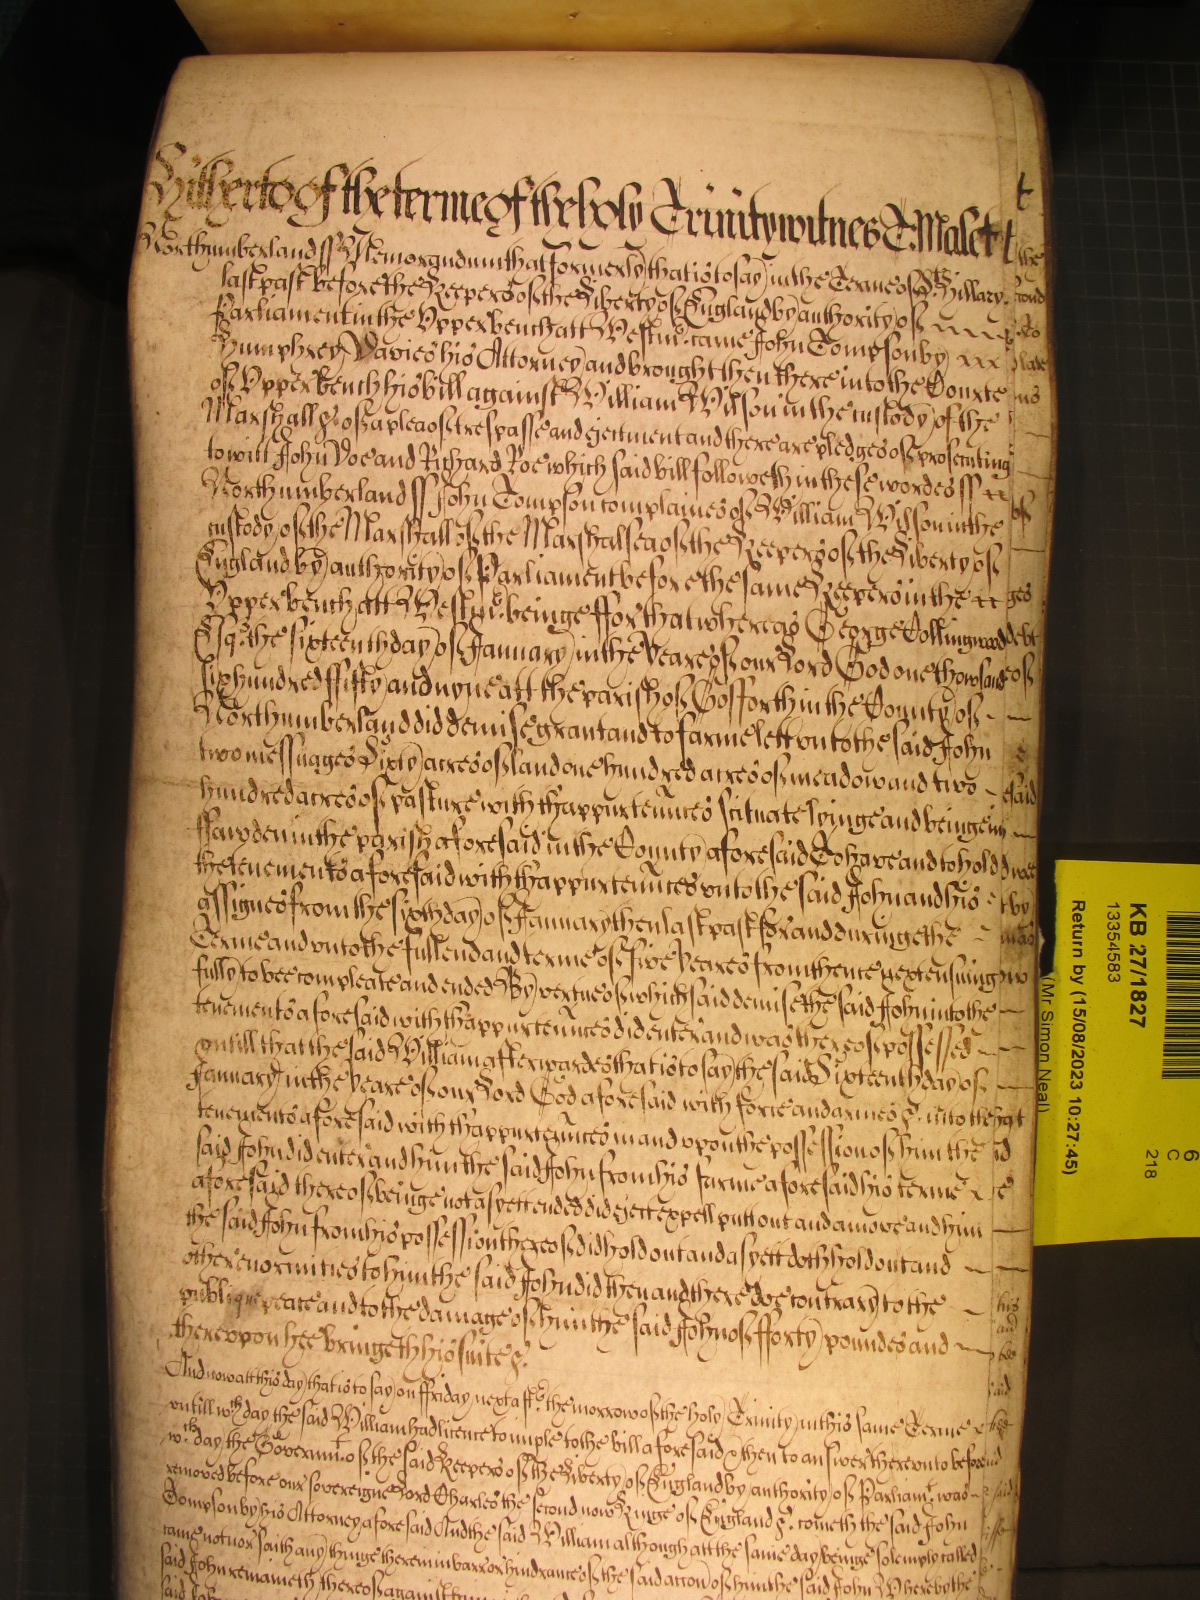 Hitherto of the terme of the holy Trinity witnes T: Malet
Northumberland ss Memorandum that formerly that is to say in the Terme of St. Hillary
last past before the Keepers of the Liberty of England by authority of
Parliament in the Vpper bench att Westmr. came John Tompson by
Humphrey Davies his Attorney and brought then there into the Courte
of Vpper bench his bill against William Wilson in the custody of the
Marshall &c of a plea of trespasse and ejectment and there are pledges of prosecuting
to witt John Doe and Richard Roe which said bill followeth in these wordes ss
Northumberland ss John Tompson complaines of William Wilson in the
custody of the Marshall of the Marshalsea of the Keepers of the Liberty of
England by authority of Parliament before the same Keepers in the
Vpper bench att Westmr. beinge ffor that whereas George Collingwood
Esqr. the sixteenth day of January in the yeare of our Lord God one thowsand
six hundred ffifty and nyne att the parish of Gosforth in the County of
Northumberland did demise grant and to farme lett vnto the said John
two messuages Sixty acres of land one hundred acres of meadow and two
hundred acres of pasture with thappurtennces scituate lyinge and beinge in
ffawden in the parish aforesaid in the County aforesaid To have and to hold
the tenements aforesaid with thappurtennces vnto the said John and his
assignes from the sixth day of January then last past for and duringe the
Terme and vnto the full end and terme of five yeares from thence next ensuing
fully to bee compleate and ended By vertue of which said demise the said John into the
tenements aforesaid with thappurtennces did enter and was thereof possessed
vntill that the said William afterwardes that is to say the said Sixteenth day of
January in the yeare of our Lord God aforesaid with force and armes &c. into the
tenements aforesaid with thappurtennces in and vpon the possession of him the
said John did enter and him the said John from his farme aforesaid his terme
aforesaid thereof beinge not as yett ended did eject expell putt out and amove and him
the said John from his possession thereof did hold out and as yett doth hold out and
other enormities to him the said John did then and there doe contrary to the
publique peace and to the damage of him the said John of fforty poundes and
therevpon hee bringeth his suite &c.
And now att this day that is to say on ffriday next aftr. the morrow of the holy Trinity in this same Terme
vntill wch day the said William had licence to imple to the bill aforesaid & then to answer therevnto before
wch. day the Govermt. of the said Keepers of the Liberty of England by authority of Parliamt. was
removed before our sovereigne Lord Charles the second now Kinge of England &c. cometh the said John
Tompson by his Attorney aforesaid And the said William although att the same day beinge solemply called
came not nor saith any thinge therein in barr or hindrance of the said accon of him the said John Whereby the
said John remaineth thereof against
KB 27/1827
13354583
Return by (15/08/2023 10:27:45)
(Mr Simon Neal)
6
C
218